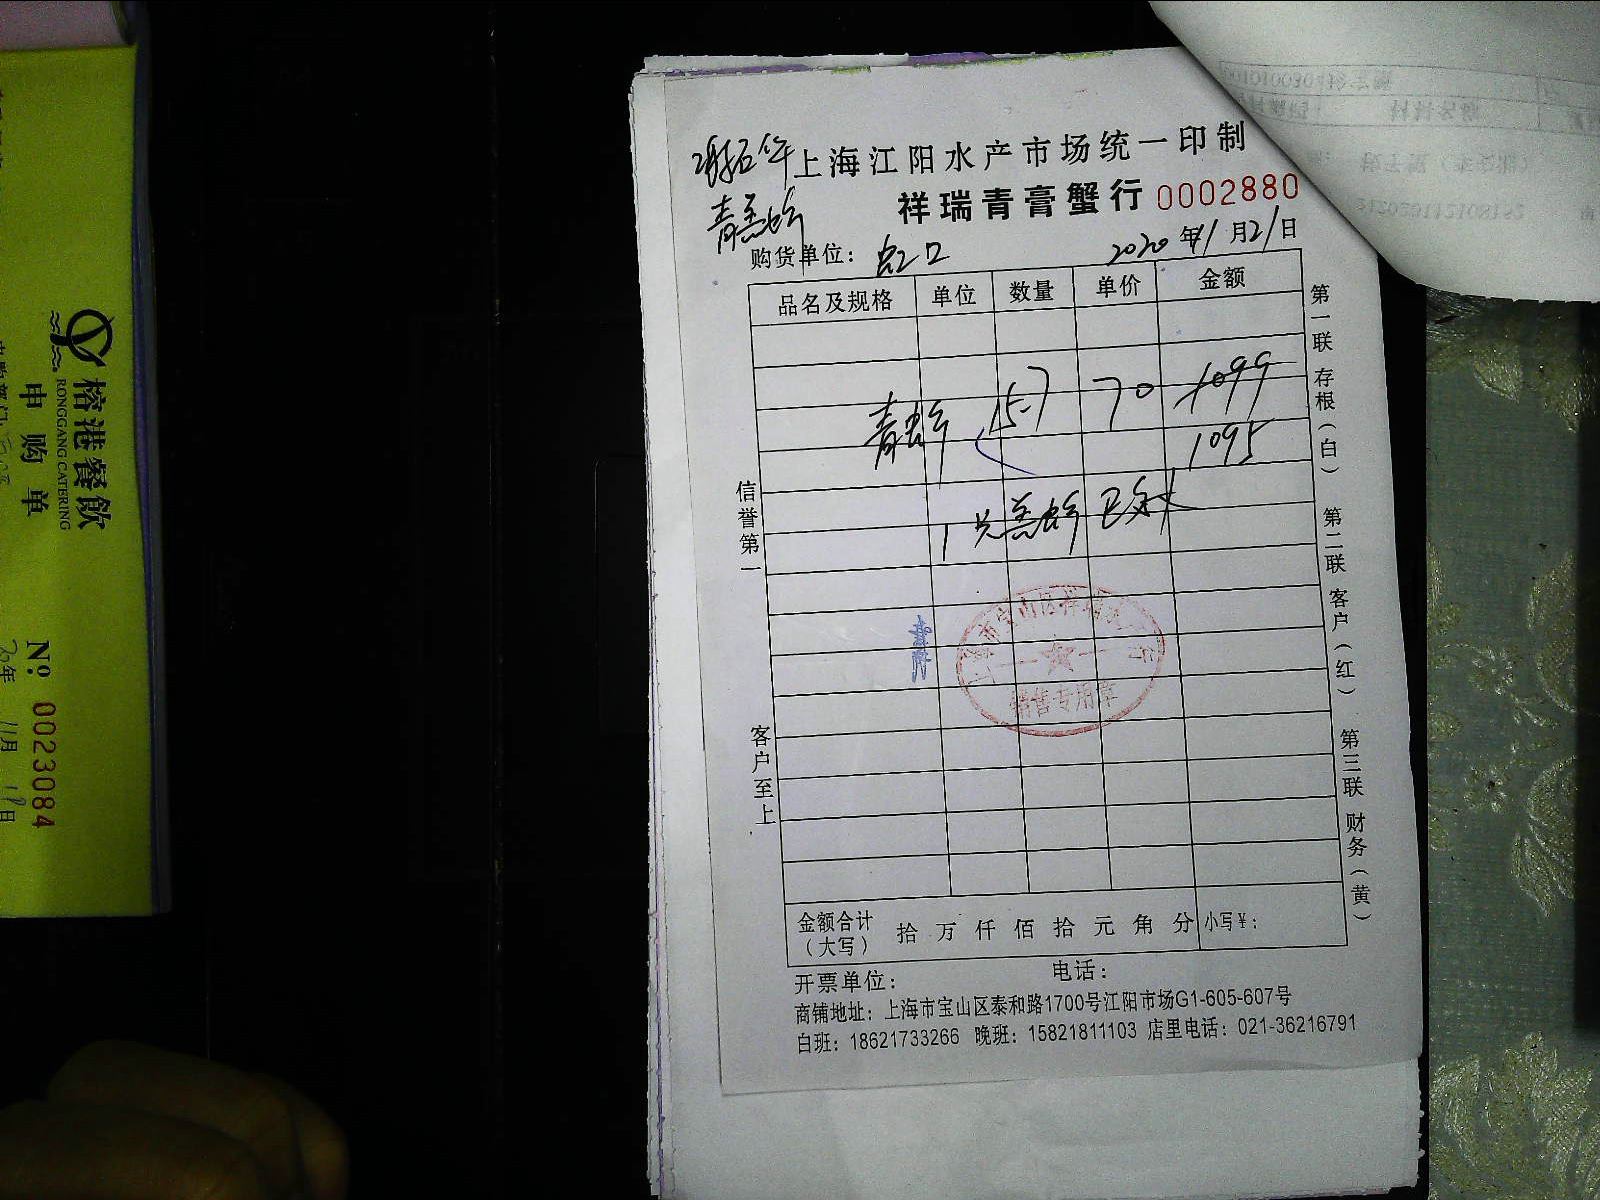 上海江阳水产市场统一印制
祥瑞青膏蟹行 0002880
青羔蟹
购货单位: 虹口 2020年11月21日
品名及规格 单位 数量 单价 金额
青蟹 15.7 70 1099
1095
1只羔蟹
信誉第一
客户至上
第一联 存根(白) 第二联 客户(红) 第三联 财务(黄)
销售专用章
金额合计(大写) 拾 万 仟 佰 拾 元 角 分 小写¥:
开票单位: 电话:
商铺地址: 上海市宝山区泰和路1700号江阳市场G1-605-607号
白班: 18621733266 晚班: 15821811103 店里电话: 021-36216791
榕港餐飲
RONGGANG CATERING
申购单
№ 0023084
20年 11月 19日